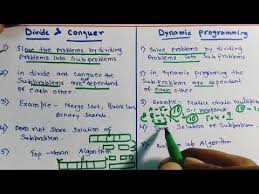 Divide & Conquer
1) Slove the Problems by dividing
Problems into Subproblems
2) In divide and Conquer the
Subproblems are independent
of each other.
3) Example - Merge Sort, Quick Sort
Binary Search.
4) Does not store Solution of
Subproblem
5) Top-down Algorithm
Dynamic programming
1) Solve problems by dividing
Problems into subproblems
2) In dynamic programing the
Sub problem are dependent of
each other.
3) Example - Matrix chain
0-1 knapsack
4) Solution of Subproblem
up Algorithm